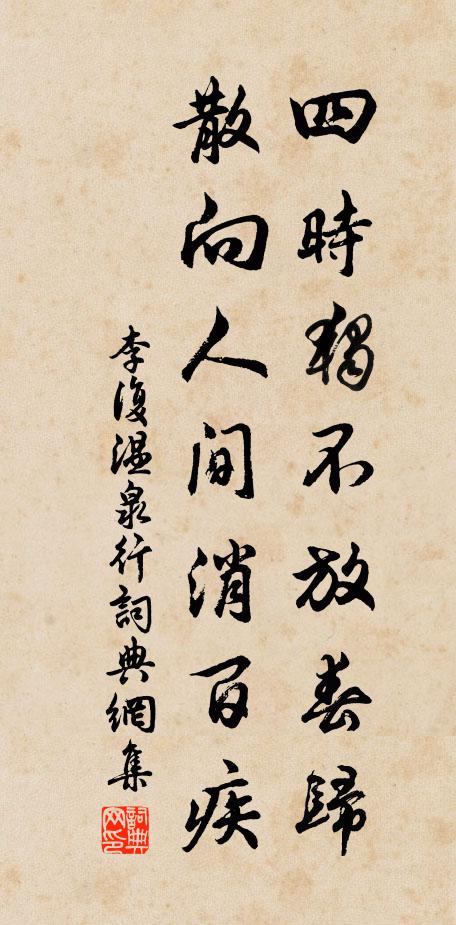 四時獨不放春歸
散向人間消百疾
李復溫泉行詞典網集
詞典網印